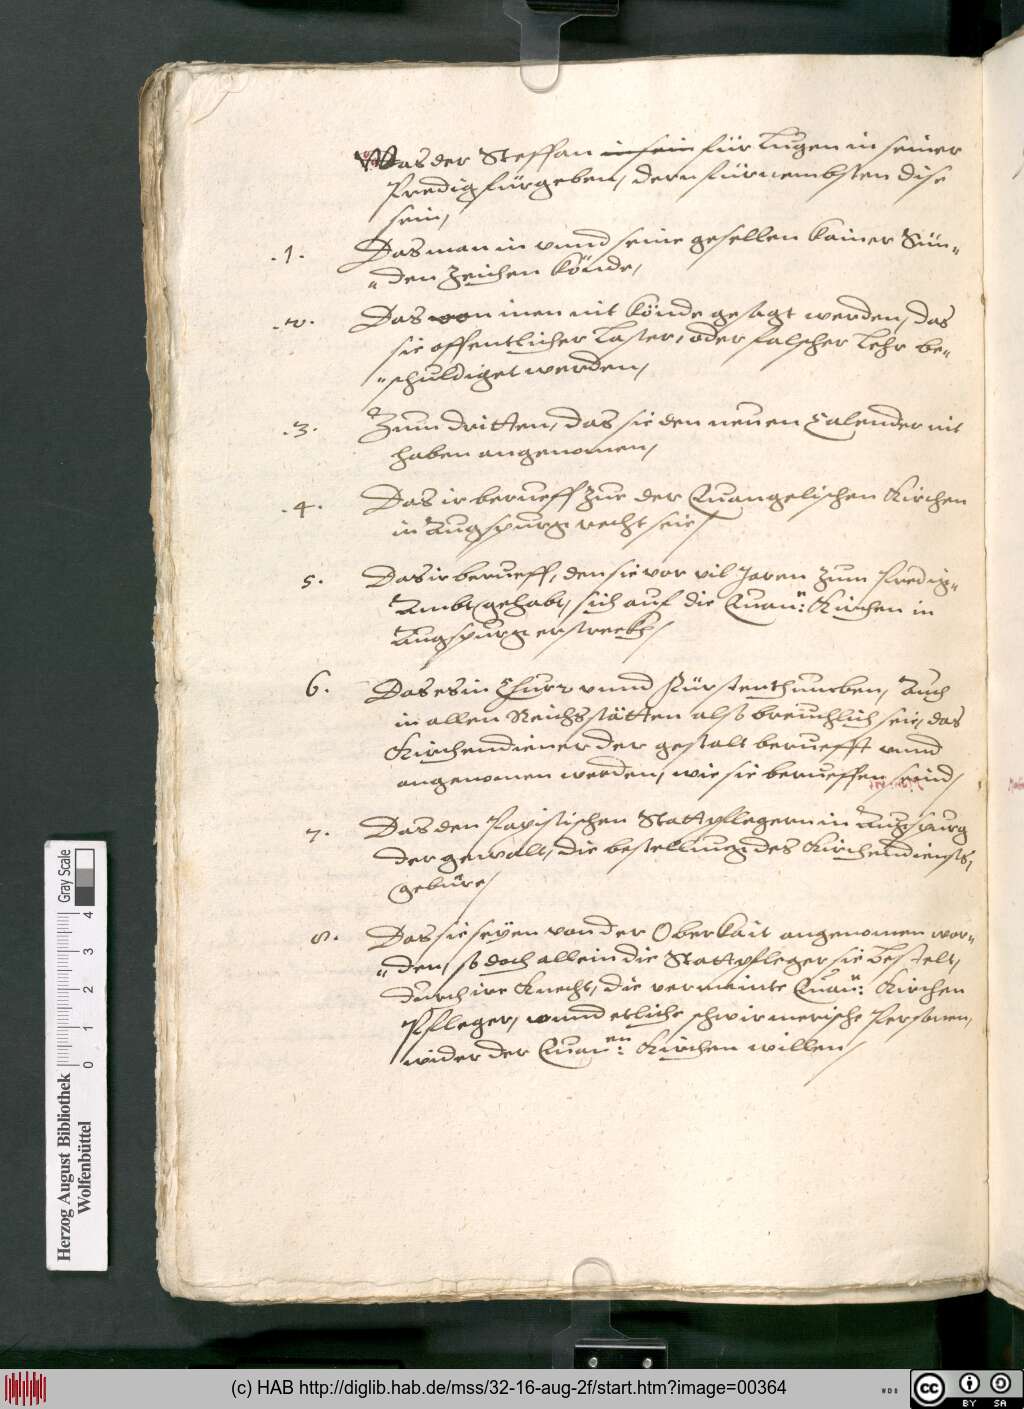 Was der Steffan in sein für Lugen in seiner
Predig fürgeben, dern fürnembsten dise
sein,
.1. Das man in vnnd seine gesellen kainer Sün-
den Zeichen könde,
.2. Das von inen nit könde gesagt werden, das
sie offentlicher Laster, oder falscher Lehr be-
schuldiget werden,
.3. Zum dritten, das sie den neuen Calender nit
haben angenomen,
.4. Das ir berueff Zue der Euangelischen Kirchen
in Augspurg recht seie,
5. Das ir berueff, den sie vor vil Jaren Zum Predig-
Ambt gehabt, sich auf die Euan:n Kirchen in
Augspurg erstreckh,
6. Das es in Chur vnnd Fürstenthumben, Auch
in allen Reichsstätten also breuchlich seie, das
Kirchendiener der gestalt berüefft vnnd
angenomen werden, wie sie berueffen seind,
7. Das den Papistischen Stattpflegern in Augspurg
der gewalt, die bestellung des Kirchendiensts,
gebüre,
8. Das sie seyen von der Oberkait angenomen wor-
den, so doch allein die Stattpfleger sie bestelt,
durch ire Knecht, die vermeinte Euan:n Kirchen
Pfleger, vnnd etliche schwirmerische Personen,
wider der Euan:en Kirchen willen,
Herzog August Bibliothek
Wolfenbüttel
0 1 2 3 4
Gray Scale
(c) HAB http://diglib.hab.de/mss/32-16-aug-2f/start.htm?image=00364
WDB
CC BY SA